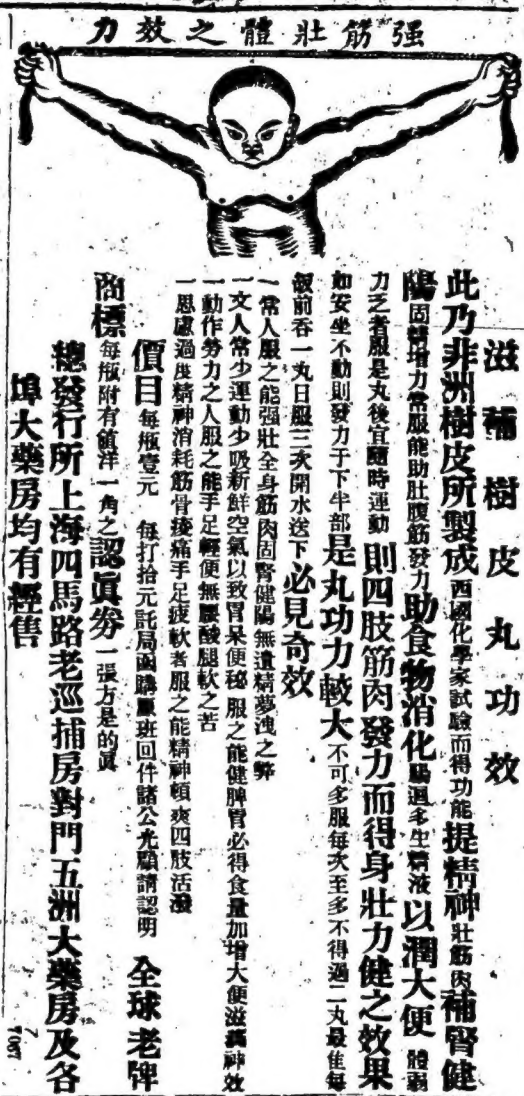 强筋壯體之效力
滋補樹皮丸功效
此乃非洲樹皮所製成西國化學家試驗而得功能提精神壯筋肉補腎健
陽固精增力常服能助肚腹筋發力助食物消化腸過多生精液以潤大便體弱
力乏者服是丸後宜隨時運動則四肢筋肉發力而得身壯力健之效果
如安坐不動則發力于下半部是丸功力較大不可多服每次至多不得過二丸最佳每
飯前吞一丸日服三次開水送下必見奇效
一常人服之能强壯全身筋肉固腎健陽無遺精夢洩之弊
一文人常少運動少吸新鮮空氣以致胃呆便秘服之能健脾胃必得食量加增大便滋潤神效
一動作勞力之人服之能手足輕便無腰酸腿軟之苦
一思慮過度精神消耗筋骨痠痛手足疲軟者服之能精神頓爽四肢活潑
價目每瓶壹元 每打拾元託局函購原班回件諸公光顧請認明 全球老牌
商標每瓶附有龍洋一角之認眞券一張方是的眞
總發行所上海四馬路老巡捕房對門五洲大藥房及各
埠大藥房均有經售